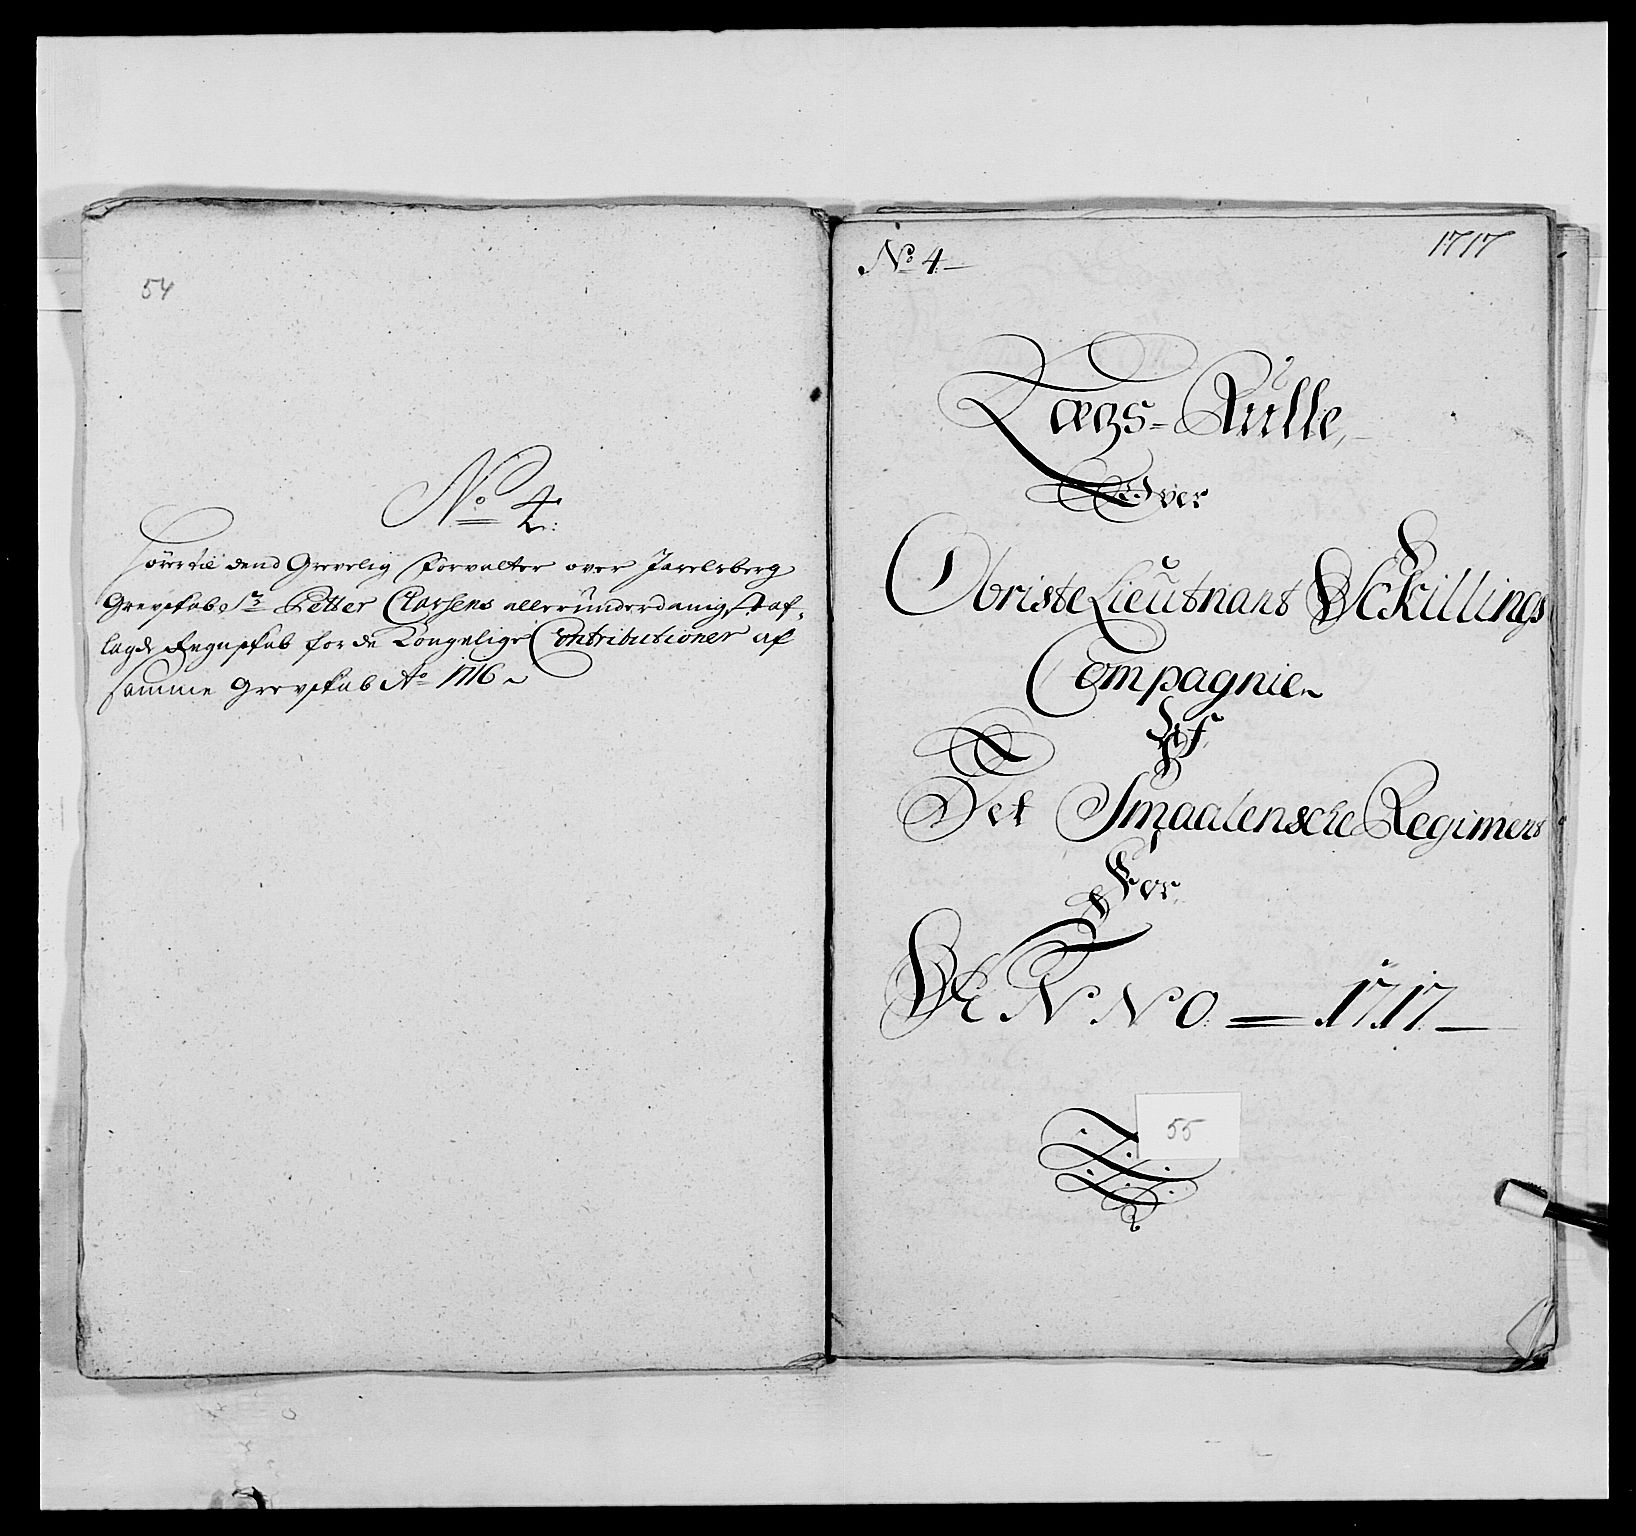 54
No 4:
Hörer til dend Grevelig Forvalter over Jarelsberg
Grevskabs Sr Petter Clausens allerunderdanigst af-
lagde Regnskab for de Kongelige Contributioner af
samme Grevskab Ao 1716
No 4
1717
Lægs-Rulle,
Over
Obriste Lieutnant Schillings
Compagnie
Af
Det Smaalensche Regiment
For
ANNO = 1717
55